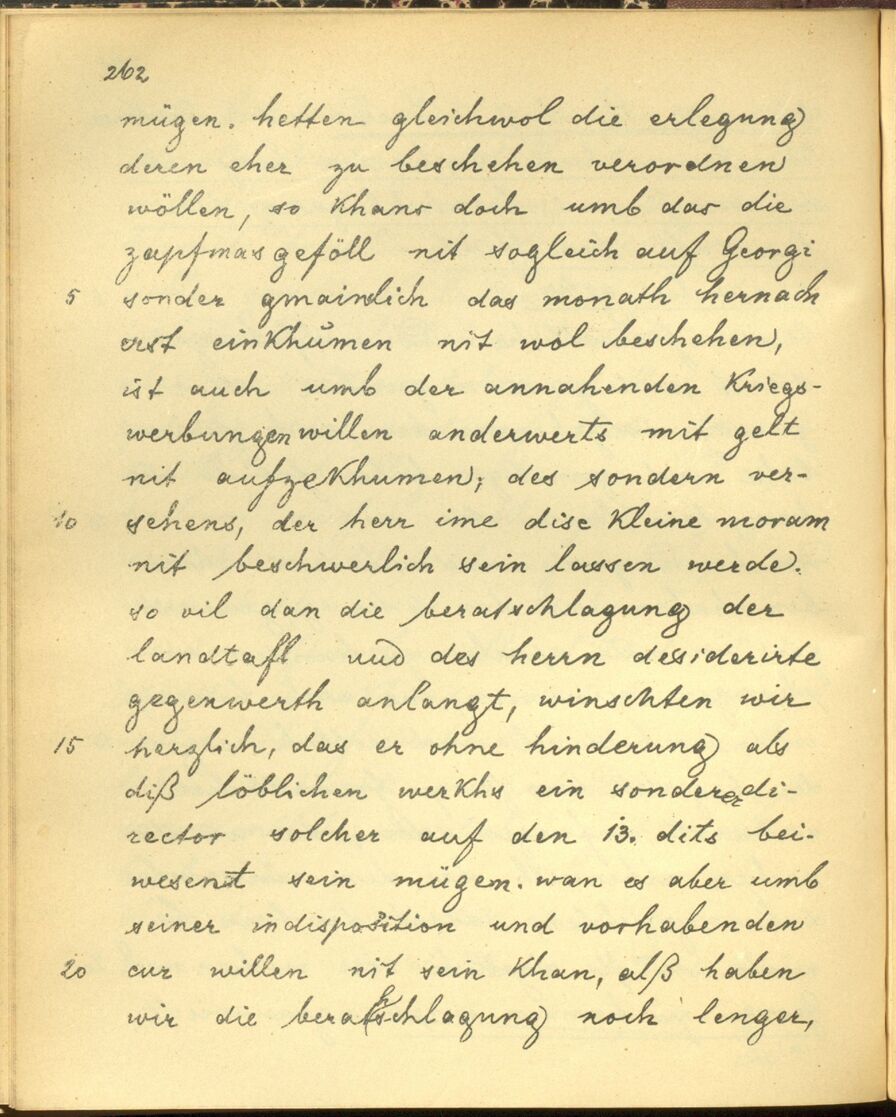 262
mügen. hetten gleichwol die erlegung
deren eher zu beschehen verordnen
wöllen, so khans doch umb das die
zapfmasgeföll nit sogleich auf Georgi
5 sonder gmainlich das monath hernach
erst einkhŭmen nit wol beschehen,
ist auch umb der annahenden kriegs-
werbungen willen anderwerts mit gelt
nit aufzekhumen; des sondern ver-
10 sehens, der herr ime dise kleine moram
nit beschwerlich sein lassen werde.
so vil dan die beratschlagung der
landtafl und des herrn dessiderirte
gegenwerth anlangt, winschten wir
15 herzlich, das er ohne hinderung als
diß löblichen werkhs ein sonderer di-
rector solcher auf den 13. dits bei-
wesent sein mügen. wan es aber umb
seiner indisposition und vorhabenden
20 cur willen nit sein khan, alß haben
wir die berathschlagung noch lenger,